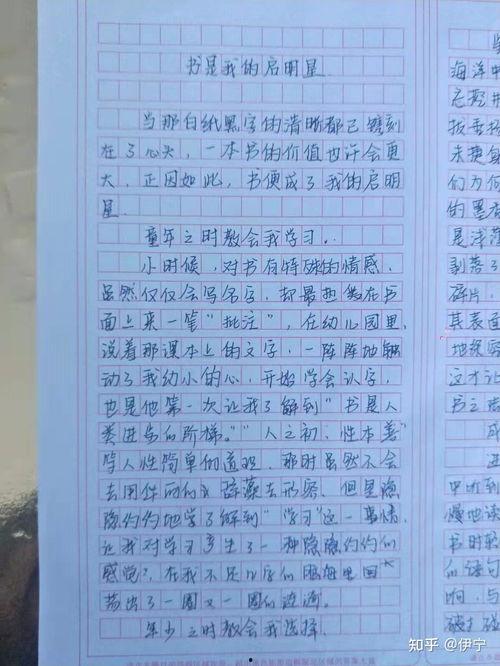 书是我的启明星
当那白纸黑字的清晰都已镌刻
在了心头，一本书的价值也许会更
大，正因如此，书便成了我的启明
星
童年之时教会我学习.
小时候，对书有特殊的情感，
虽然仅仅会写名字，却最热衷在书
面上来一笔“批注”，在幼儿园里，
说着那课本上的文字，一阵阵地触
动了我幼小的心，开始学会认字，
也是他第一次让我了解到“书是人
类进步的阶梯。”“人之初，性本善”
等人性简单的道理，那时虽然不会
去用 的 辞藻去形容，但是隐
隐约约地学了解到“学习”这一事情，
让我对学习产生了一种隐隐约约的
感觉？，在我不足 的 里 回
荡出了一圈又一圈的涟漪。
年少之时教会我选择
海洋中
未捷
们为何
的墨
是
剥落了
碎片，
其表面
地
这才让
书之
甲
慢地读
书时
的语句
响，与
知乎 @伊宁